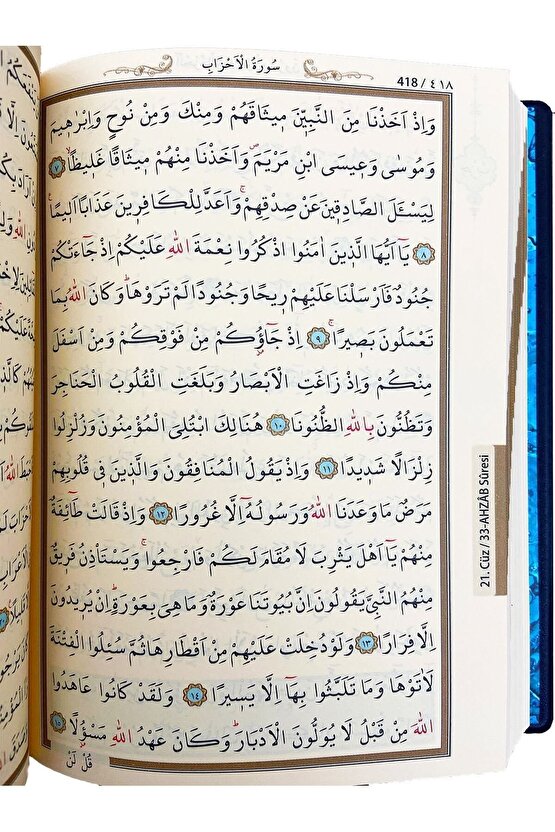 سُورَةُ الْاَحْزَابِ
418 / ٤١٨
وَاِذْ اَخَذْنَا مِنَ النَّبِيّٖنَ مٖيثَاقَهُمْ وَمِنْكَ وَمِنْ نُوحٍ وَاِبْرٰهٖيمَ
وَمُوسٰى وَعٖيسَى ابْنِ مَرْيَمَۖ وَاَخَذْنَا مِنْهُمْ مٖيثَاقًا غَلٖيظًاۙ ٧
لِيَسْـَٔلَ الصَّادِقٖينَ عَنْ صِدْقِهِمْۚ وَاَعَدَّ لِلْكَافِرٖينَ عَذَابًا اَلٖيمًاۧ
٨ يَٓا اَيُّهَا الَّذٖينَ اٰمَنُوا اذْكُرُوا نِعْمَةَ اللّٰهِ عَلَيْكُمْ اِذْ جَٓاءَتْكُمْ
جُنُودٌ فَاَرْسَلْنَا عَلَيْهِمْ رٖيحًا وَجُنُودًا لَمْ تَرَوْهَاؕ وَكَانَ اللّٰهُ بِمَا
تَعْمَلُونَ بَصٖيرًاۚ ٩ اِذْ جَٓاؤُ۫كُمْ مِنْ فَوْقِكُمْ وَمِنْ اَسْفَلَ
مِنْكُمْ وَاِذْ زَاغَتِ الْاَبْصَارُ وَبَلَغَتِ الْقُلُوبُ الْحَنَاجِرَ
وَتَظُنُّونَ بِاللّٰهِ الظُّنُونَا ١٠ هُنَالِكَ ابْتُلِيَ الْمُؤْمِنُونَ وَزُلْزِلُوا
زِلْزَالًا شَدٖيدًا ١١ وَاِذْ يَقُولُ الْمُنَافِقُونَ وَالَّذٖينَ فٖى قُلُوبِهِمْ
مَرَضٌ مَا وَعَدَنَا اللّٰهُ وَرَسُولُهُٓ اِلَّا غُرُورًا ١٢ وَاِذْ قَالَتْ طَٓائِفَةٌ
مِنْهُمْ يَٓا اَهْلَ يَثْرِبَ لَا مُقَامَ لَكُمْ فَارْجِعُواۚ وَيَسْتَأْذِنُ فَرٖيقٌ
مِنْهُمُ النَّبِيَّ يَقُولُونَ اِنَّ بُيُوتَنَا عَوْرَةٌ وَمَا هِيَ بِعَوْرَةٍۚ اِنْ يُرٖيدُونَ
اِلَّا فِرَارًا ١٣ وَلَوْ دُخِلَتْ عَلَيْهِمْ مِنْ اَقْطَارِهَا ثُمَّ سُئِلُوا الْفِتْنَةَ
لَاٰتَوْهَا وَمَا تَلَبَّثُوا بِهَٓا اِلَّا يَسٖيرًا ١٤ وَلَقَدْ كَانُوا عَاهَدُوا
اللّٰهَ مِنْ قَبْلُ لَا يُوَلُّونَ الْاَدْبَارَؕ وَكَانَ عَهْدُ اللّٰهِ مَسْؤُ۫لًا ١٥
قُلْ لَنْ
21. Cüz / 33-AHZÂB Sûresi